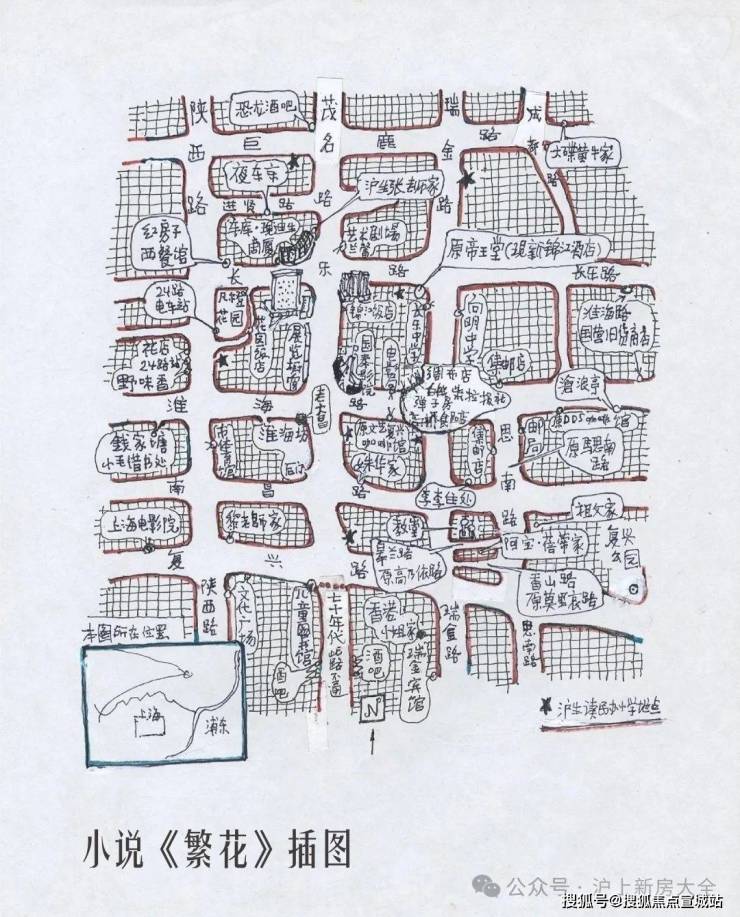 恐龙酒吧
陕西路
茂名路
瑞金路
成都路
巨鹿路
大碟黄牛家
夜东京
进贤路
沪生
家
红房子
西餐馆
艺术剧场
兰馨
原帝王堂(现新锦江酒店)
长乐路
长乐路
24路
电车站
花园
花园饭店
锦江饭店
国泰影院
向明中学
集邮店
淮海路
国营旧货商店
花店
24路站
野味香
淮海路
老大昌
沧浪亭
钱家塘
小毛借书处
体育馆
淮海坊
原文艺复兴
咖啡馆
姝华家
集邮店
思南路
邮局
原DDS咖啡馆
原马思南
路
南昌路
李李住处
上海电影院
黎老师家
教堂
皋兰路
原高乃依路
祖父家
阿宝·蓓蒂家
复兴公园
复兴路
香山路
原莫里哀路
陕西路
文化广场
儿童图书馆
七十年代此路不通
香港
小姐家
瑞金宾馆
瑞金路
思南路
酒吧
酒吧
本图所在位置
上海
浦东
N
沪生读民办小学地点
小说《繁花》插图
公众号·沪上新房大全
搜狐号@搜狐焦点宣城站